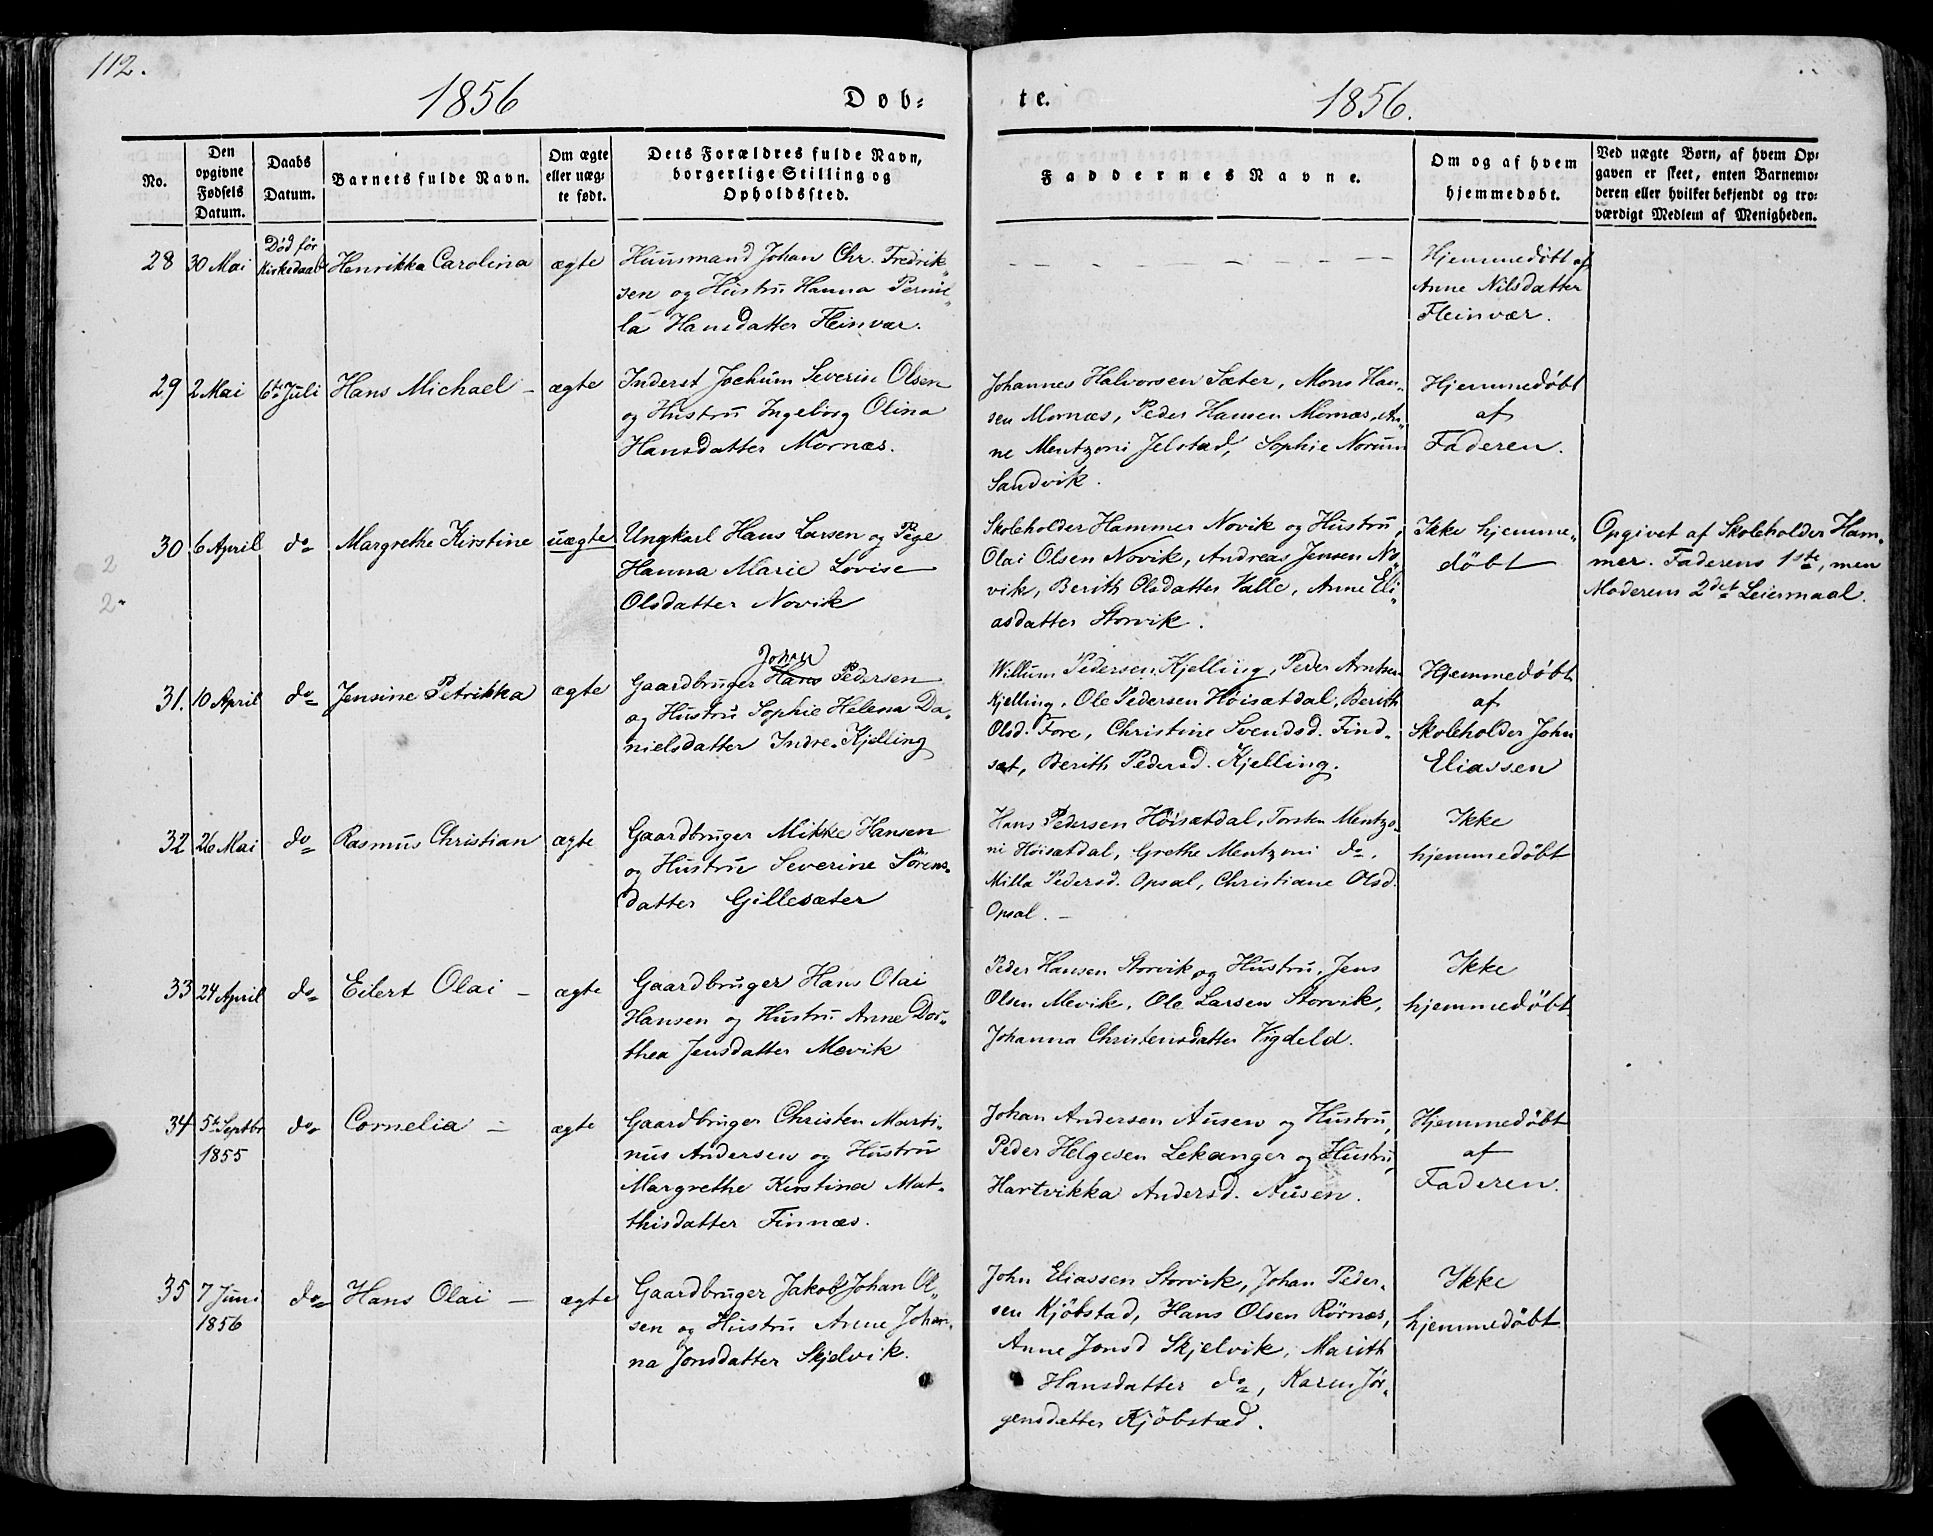 112.
1856
Døb-
te.
1856.
No.
Den opgivne Fødsels Datum.
Daabs Datum.
Barnets fulde Navn.
Om ægte eller uægte født.
Dets Forældres fulde Navn, borgerlige Stilling og Opholdssted.
Faddernes Navne.
Om og af hvem hjemmedøbt.
Ved uægte Børn, af hvem Opgaven er skeet, enten Barnemoderen eller hvilket bekjendt og troværdigt Medlem af Menigheden.
28
30 Mai
Død før
Kirkedaab
Henrikka Carolina
ægte
Huusmand Johan Chr. Fredrik-
sen og Hustru Hanna Pernil-
la Hansdatter Fleinvær.
Hjemmedøbt af
Anne Nilsdatter
Fleinvær.
29
2 Mai
6te Juli
Hans Michael –
ægte
Inderst Jochum Severin Olsen
og Hustru Ingeborg Olina
Hansdatter Mornæs.
Johannes Halvorsen Sæter, Mons Han-
sen Mornæs, Peder Hansen Mornæs, An-
ne Mentzoni Jelstad, Sophie Norum
Sandvik.
Hjemmedøbt
af
Faderen.
2
2
30
6 April
do
Margrethe Kirstine
uægte
Ungkarl Hans Larsen og Pige
Hanna Marie Lovise
Olsdatter Novik
Skoleholder Hammer Novik og Hustru,
Olai Olsen Novik, Andreas Jensen No-
vik, Berith Olsdatter Valle, Anne Eli-
asdatter Storvik.
Ikke hjemme-
døbt
Opgivet af Skoleholder Ham-
mer. Faderens 1ste, men
Moderens 2det Leiermaal.
31.
10 April
do
Jensine Petrikka
ægte
Johan
Gaardbruger Hans Pedersen
og Hustru Sophie Helena Da-
nielsdatter Indre-Kjelling
Willum Pedersen Kjelling, Peder Arntsen
Kjelling, Ole Pedersen Höisætdal, Berith
Olsd. Fore, Christine Svendsd. Find-
sæt, Berith Pedersd. Kjelling.
Hjemmedøbt
af
Skoleholder John
Eliassen
32
26 Mai
do
Rasmus Christian
ægte
Gaardbruger Mikke Hansen
og Hustru Severine Sörens-
datter Gillesæter
Hans Pedersen Höisætdal, Torsten Mentzo-
ni Höisætdal, Grethe Mentzoni do,
Milla Pedersd. Opsal, Christiane Olsd.
Opsal. –
Ikke
hjemmedøbt
33
24 April
do
Eilert Olai –
ægte
Gaardbruger Hans Olai
Hansen og Hustru Anne Dor-
thea Jensdatter Mevik
Peder Hansen Storvik og Hustru, Jens
Olsen Mevik, Ole Larsen Storvik,
Johanna Christensdatter Vigdeld.
Ikke
hjemmedøbt
34
5te Septbr
1855
do
Cornelia –
ægte
Gaardbruger Christen Marti-
nus Andersen og Hustru
Margrethe Kirstina Mat-
thisdatter Finnæs.
Johan Andersen Ausen og Hustru,
Peder Helgesen Lekanger og Hustru,
Hartvikka Andersd. Ausen.
Hjemmedøbt
af
Faderen.
35
7 Juni
1856
do
Hans Olai –
ægte
Gaardbruger Jakob Johan Ol-
sen og Hustru Anne Johan-
na Jonsdatter Skjelvik.
John Eliassen Storvik, Johan Peder-
sen Kjöbstad, Hans Olsen Rörnæs,
Anne Jonsd Skjelvik, Marith
Hansdatter do, Karen Jör-
gensdatter Kjöbstad.
Ikke
hjemmedøbt